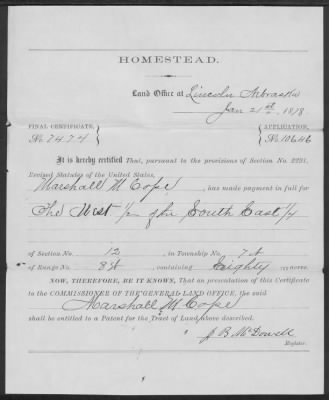 HOMESTEAD.
Land Office at Lincoln Nebraska
Jan 21st, 1878
FINAL CERTIFICATE, APPLICATION,
No. 2474 No. 10646
It is hereby certified That, pursuant to the provisions of Section No. 2291,
Revised Statutes of the United States,
Marshall M Cope, has made payment in full for
The West 1/2 of the South East 1/4
of Section No. 12, in Township No. 7 N
of Range No. 8 W, containing Eighty acres.
NOW, THEREFORE, BE IT KNOWN, That on presentation of this Certificate
to the COMMISSIONER OF THE GENERAL LAND OFFICE, the said
Marshall M. Cope
shall be entitled to a Patent for the Tract of Land above described.
J B McDowell
Register.